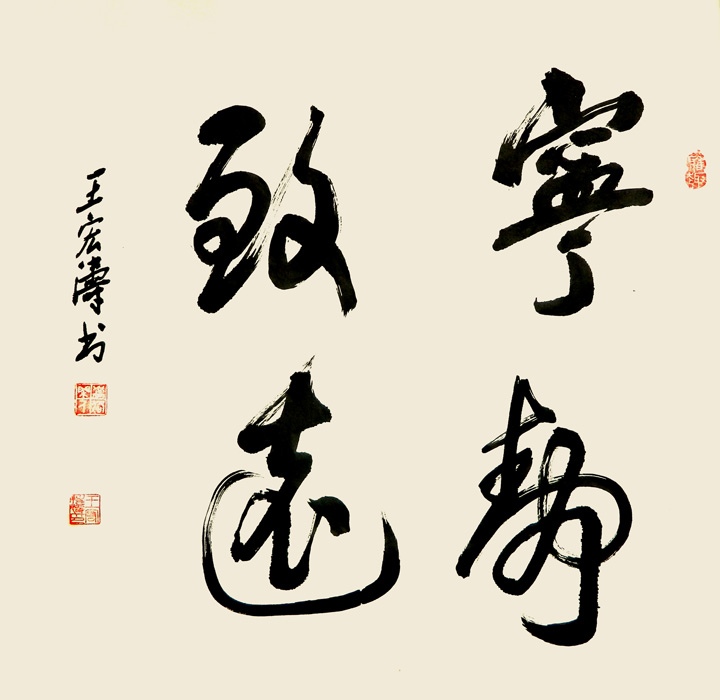 寧靜
致遠
王宏濤书